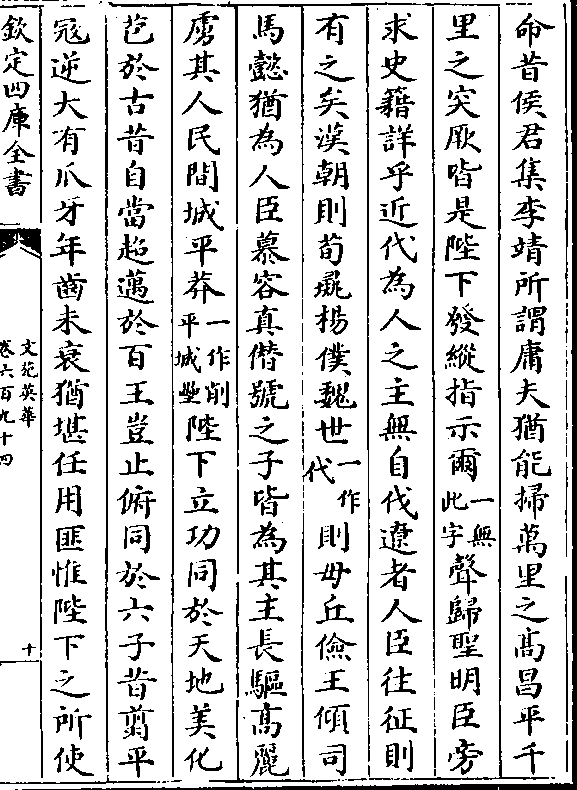 命昔侯君集李靖所謂庸夫猶能掃萬里之高昌平千
里之突厥皆是陛下發縱指示爾一無此字聲歸聖明臣旁
求史籍詳乎近代為人之主無自伐遼者人臣往征則
有之矣漢朝則荀彘楊僕魏世一作代則毋丘儉王頎司
馬懿猶為人臣慕容真僭號之子皆為其主長驅高麗
虜其人民間城平莽一作削平城壘陛下立功同於天地美化
苞於古昔自當超邁於百王豈止俯同於六子昔翦平
冦逆大有爪牙年齒未衰猶堪任用匪惟陛下之所使
欽定四庫全書
文苑英華
卷六百九十四
十